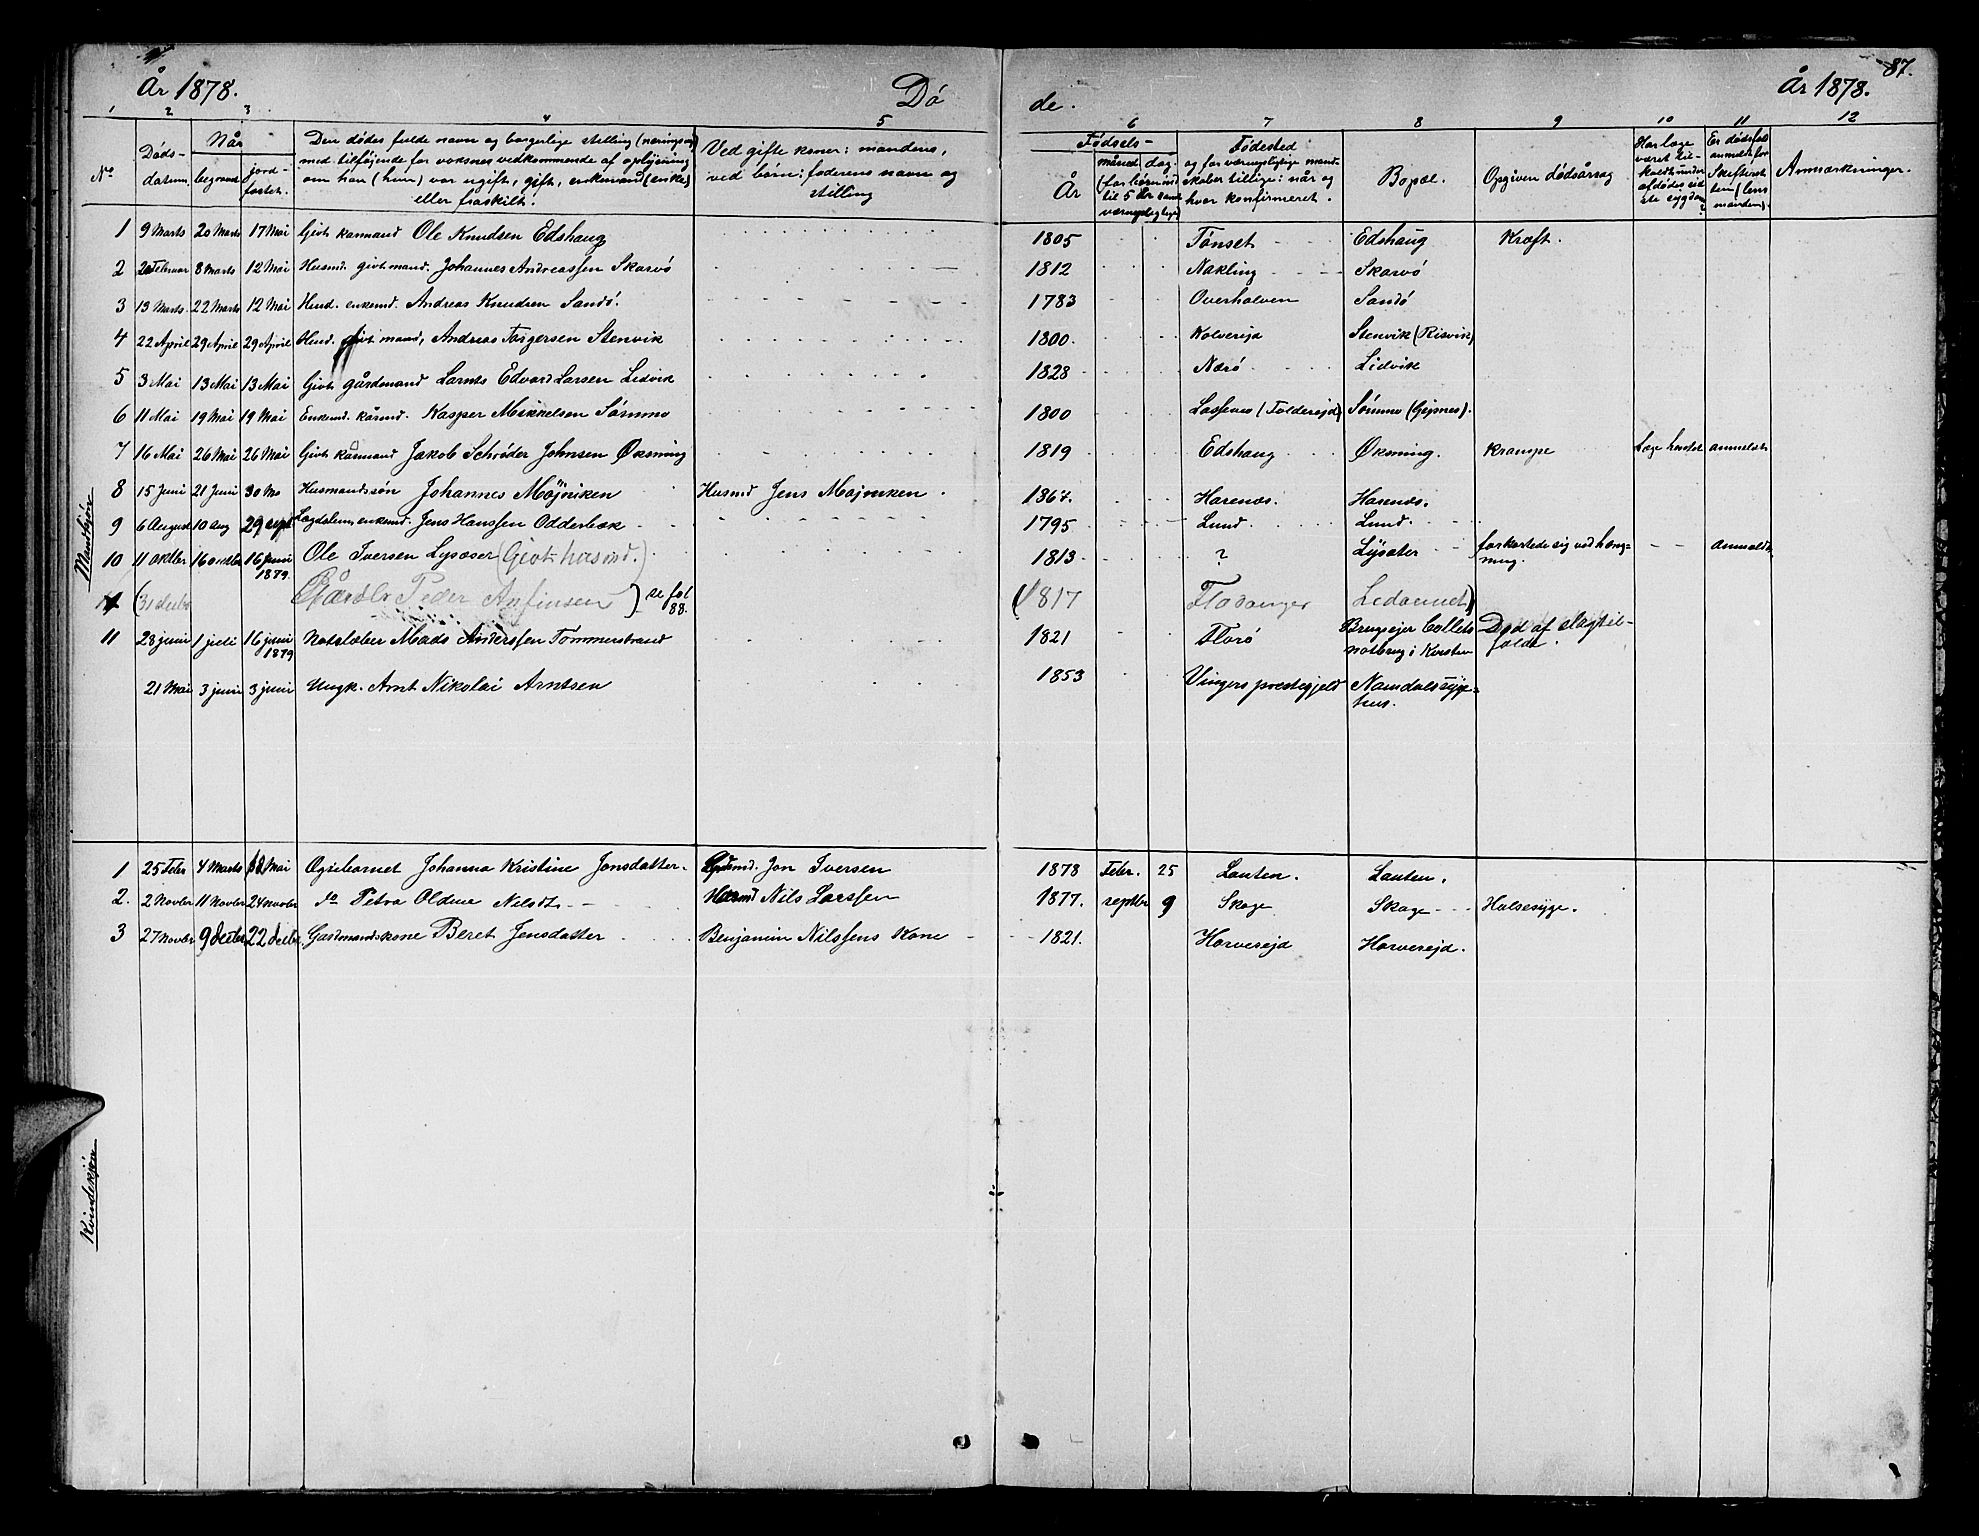 År 1878.
Dö
de.
År 1878.
87.
1 2 3 4 5 6 7 8 9 10 11 12
No
Døds-
datum
Når
begravet
jord-
fæstet.
Den dødes fulde navn og borgerlige stilling (næringsvei)
med tilføjende for voksnes vedkommende af oplysning
om han (hun) var ugift, gift, enkemand (enke)
eller fraskilt.
Ved gifte koner: mandens,
ved børn: faderens navn og
stilling
Fødsels-
År
måned dag.
(for børn ind
til 5 år samt
værnepligtige)
Fødested
og for værnepligtige mand-
skaber tillige: når og
hvor konfirmeret.
Bopæl.
Opgiven dødsårsag
Har læge
været til-
kaldt under
afdødes sid
ste sygdom
?
Er dødsfald
anmeldt for
Skifteret
ten (lens
manden).
Anmærkninger.
Mandkjøn
1 9 Marts 20 Marts 17 Mai Givt kårmand Ole Knudsen Edshaug 1805 Tønset Edshaug Kræft.
2 Februar 8 Marts 12 Mai Husmd. givt mand. Johannes Andreassen Skarvö 1812 Nakling Skarvö
3 13 Marts 22 Marts 12 Mai Husd. enkemd. Andreas Knudsen Sandö. 1783 Overhalven Sandö
4 22 April 29 April 29 April Husd. givt mand, Andreas Torgersen Stenvik 1800 Kolvereja Stenvik (Risvik)
5 3 Mai 13 Mai 13 Mai Givt gårdmand Larnts Edvard Larsen Lidvik 1828 Nærö Lidvik
6 11 Mai 19 Mai 19 Mai Enkemd. kårmd. Kasper Mikkelsen Sømmo 1800 (Folderejd) Sømmo (Gjesnes).
7 16 Mai 26 Mai 26 Mai Givt kårmand Jakob Schrøder Johnsen Øksning 1819 Edshaug Øksning. Krampe Læge havdt anmeldt
8 15 Juni 21 Juni 30 Husmandssøn Johannes Möjniken Husmd Jens Mojniken. 1864. Harenæs. Harenæs.
9 6 August 10 Aug 29 sept Lægdslem, enkemd. Jens Hanssen Odderbak 1795 Lund. Lund.
10 11 oktbr 16 oktbr 16 juni
1879. Ole Iversen Lysæser (Givt husmd.) 1813 ? Lysater forkortede sig ved hæng-
ning. Anmeldt
(31 decbr Gårdbr Peder Anfinsen) se fol
88. (1817 Flodanger Ledarnet)
11 28 juni 1 juli 16 juni
1879 Notslæber Mads Anderssen Tømmerstrand 1821 Florö Brugsejer Collets
notbrug i Kvisten Død af slagtil-
falde.
21 Mai 3 juni 3 juni Ungk. Arnt Nikolai Arntsen 1853 Vingers prestegjeld Namdals syge-
hus.
Kvindekjön
1 25 Febr 4 Marts 12 Mai Ogsebarnet Johanna Kristine Jonsdatter. Jon Iversen 1878 Febr. 25 Lauten. Lauten.
2. 2 Novbr 11 Novbr 24 novbr do Petra Oldine Nilsdt. Husmd Nils Larssen 1877. septbr 9 Skage Skage Halsesyge.
3 27 Novbr 9 decbr 22 decbr. Gardmandskone Beret Jensdatter Benjamin Nilssens Kone 1821. Horverejd Horverejd.